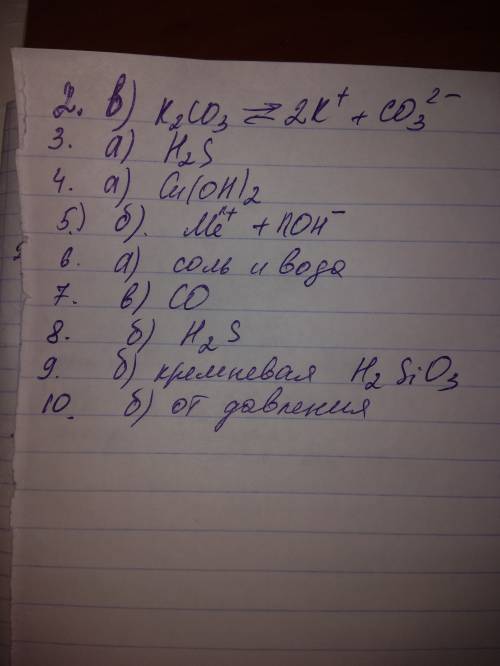 2. в) K₂CO₃ ⇄ 2K⁺ + CO₃²⁻
3. а) H₂S
4. а) Cu(OH)₂
5.) б). Meⁿ⁺ + nOH⁻
6. а) соль и вода
7. в) CO
8. б) H₂S
9. б) кремневая H₂SiO₃
10. б) от давления